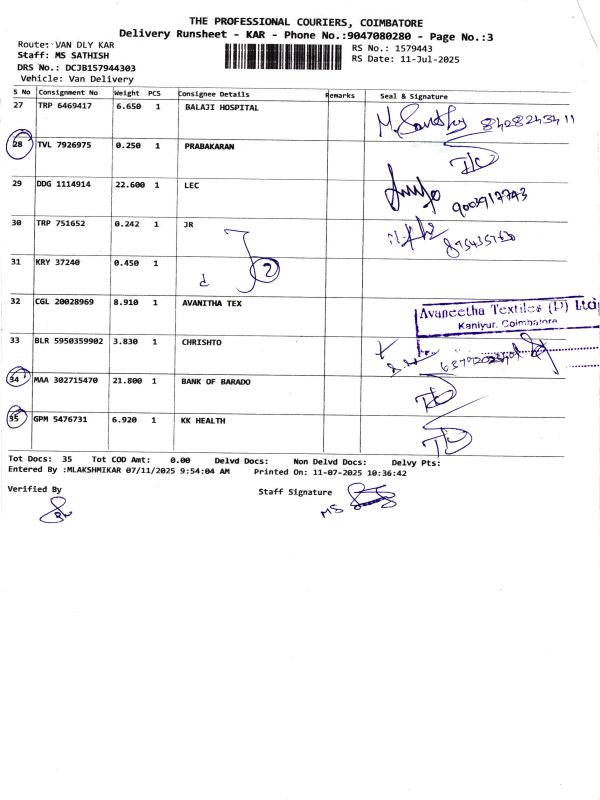 THE PROFESSIONAL COURIERS, COIMBATORE
Delivery Runsheet - KAR - Phone No.:9047080280 - Page No.:3
Route: VAN DLY KAR
Staff: MS SATHISH
DRS No.: DCJB157944303
Vehicle: Van Delivery
RS No.: 1579443
RS Date: 11-Jul-2025
S No Consignment No Weight PCS Consignee Details Remarks Seal & Signature
27 TRP 6469417 6.650 1 BALAJI HOSPITAL
28 TVL 7926975 0.250 1 PRABAKARAN
29 DDG 1114914 22.600 1 LEC
9003917743
30 TRP 751652 0.242 1 JR
31 KRY 37240 0.450 1
2
32 CGL 20028969 8.910 1 AVANITHA TEX
Avaneetha Textiles (P) Ltd
Kaniyur, Coimbatore
33 BLR 5950359902 3.830 1 CHRISHTO
34 MAA 302715470 21.800 1 BANK OF BARADO
35 GPM 5476731 6.920 1 KK HEALTH
Tot Docs: 35 Tot COD Amt: 0.00 Delvd Docs: Non Delvd Docs: Delvy Pts:
Entered By :MLAKSHMIKAR 07/11/2025 9:54:04 AM Printed On: 11-07-2025 10:36:42
Verified By
Staff Signature
MS